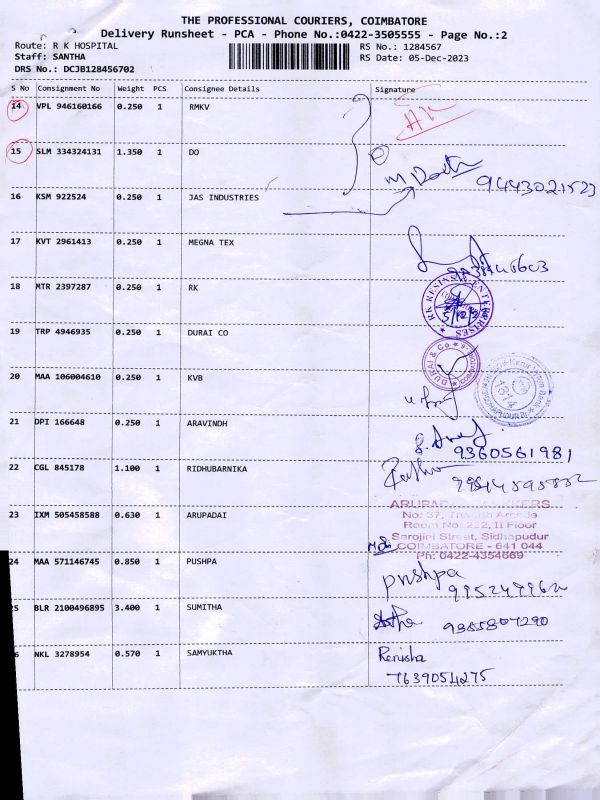 THE PROFESSIONAL COURIERS, COIMBATORE
Delivery Runsheet - PCA - Phone No.:0422-3505555 - Page No.:2
Route: R K HOSPITAL RS No.: 1284567
Staff: SANTHA RS Date: 05-Dec-2023
DRS No.: DCJB128456702
S No Consignment No Weight PCS Consignee Details Signature
14 VPL 946160166 0.250 1 RMKV
15 SLM 334324131 1.350 1 DO
9443021523
16 KSM 922524 0.250 1 JAS INDUSTRIES
17 KVT 2961413 0.250 1 MEGNA TEX
18 MTR 2397287 0.250 1 RK
RK RESINS & ENTERPRISES
19 TRP 4946935 0.250 1 DURAI CO
DURAI & Co
20 MAA 106004610 0.250 1 KVB
1614
21 DPI 166648 0.250 1 ARAVINDH
9360561981
22 CGL 845178 1.100 1 RIDHUBARNIKA
23 IXM 505458588 0.630 1 ARUPADAI
No: 37,
Room No: 222, II Floor
Sarojini Street, Sidhapudur
COIMBATORE - 641 044
Ph: 0422-4354669
24 MAA 571146745 0.850 1 PUSHPA
pushpa
25 BLR 2100496895 3.400 1 SUMITHA
9365807290
6 NKL 3278954 0.570 1 SAMYUKTHA
Renisha
7639054275